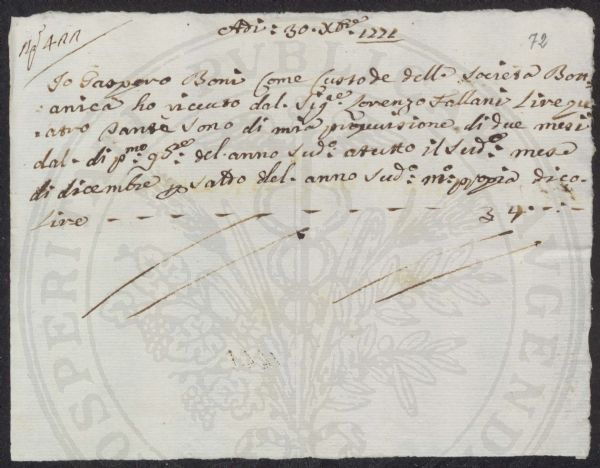 Adi: 30 Xbre 1771
72
Io Gaspero Boni Come Custode dell. Società Bot=
=anica ho riceuto dal. Sigre Lorenzo Fallani Lire qu=
=atro Sante Sono di mia provisione di due mesi
dal. di pmo 9bre del. anno sudo: atutto il sudo: mese
di dicembre saldo del. anno sudo: mo: propria dico.
Lire - - - - - - - - - - 4. - : -
PUBLIC
PROSPERI
AUGENDAE